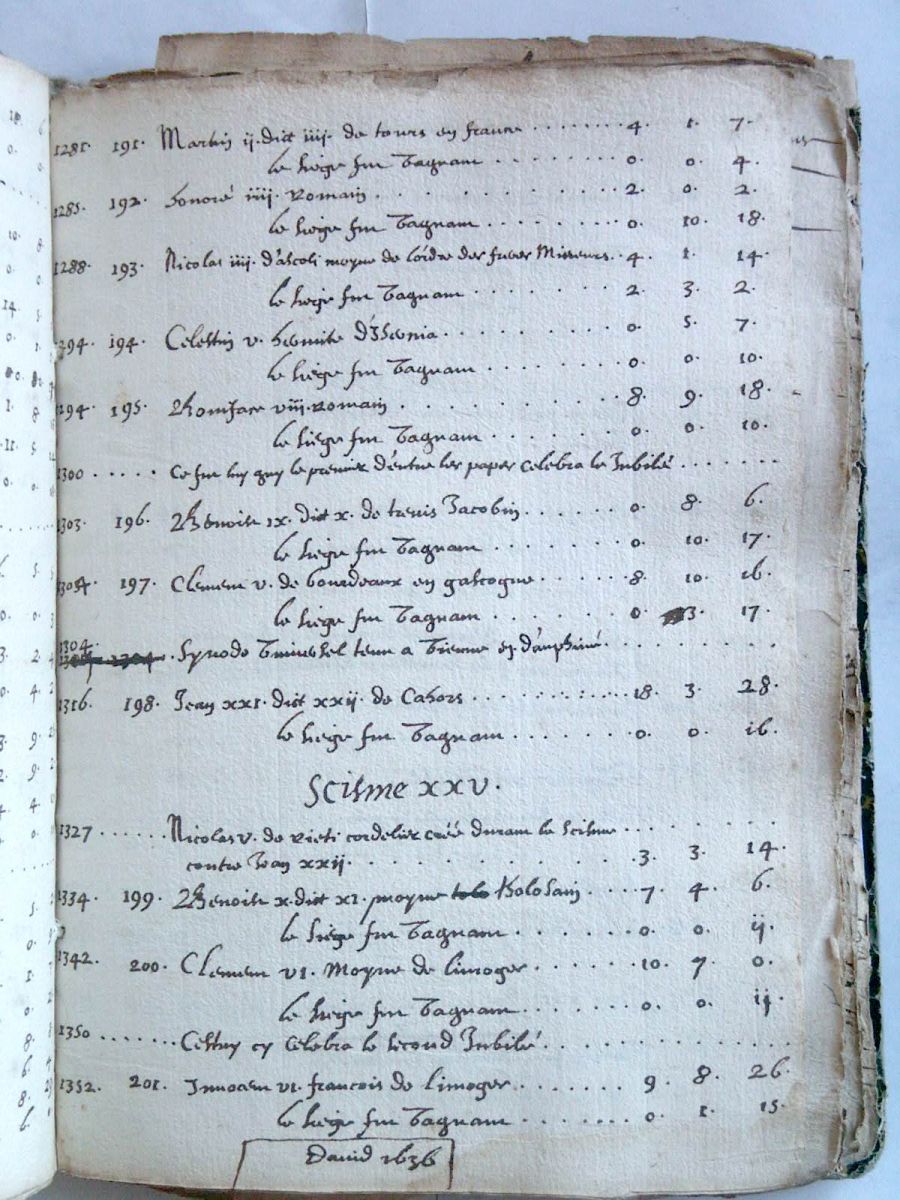 1281. 191. Martin ij. dict iiij. de tours en france ........ 4. 1. 7.
le siege fut vaquant ........ 0. 0. 4.
1285. 192. honoré iiij. Romain ........ 2. 0. 2.
le siege fut vaquant ........ 0. 10. 18.
1288. 193. Nicolas iiij. d'ascoli moyne de l'ordre des freres Mineurs .. 4. 1. 14.
le siege fut vaquant ........ 2. 3. 2.
1294. 194. Celestin v. hermite d'Isernia ........ 0. 5. 7.
le siege fut vaquant ........ 0. 0. 10.
1294. 195. Boniface viii. Romain ........ 8. 9. 18.
le siege fut vaquant ........ 0. 0. 10.
1300 ..... Ce fut luy quy le premier d'entre les papes celebra le Jubilé .......
1303. 196. Benoist ix. dict x. de trevis Jacobin ........ 0. 8. 6.
le siege fut vaquant ........ 0. 10. 17.
197. Clement v. de bourdeaux en gascogne ........ 8. 10. 16.
le siege fut vaquant ........ 0. 3. 17.
1304. Synode tenu a Vienne en d'auphiné ........
1316. 198. Jean xxi. dict xxij. de Cahors ........ 18. 3. 28.
le siege fut vaquant ........ 0. 0. 16.
Scisme xxv.
1327 ...... Nicolas v. de rieti cordelier créé durant le scisme ......
contre Jean xxij. ........ 3. 3. 14.
1334 199. Benoist x. dict xi. moyne tolosain .... 7. 4. 6.
le siege fut vaquant ........ 0. 0. ij.
1342. 200. Clement vi. Moyne de limoges ........ 10. 7. 0.
le siege fut vaquant ........ 0. 0. ij.
1350 ....... Cestuy cy celebra le second Jubilé ........
1352. 201. Innocent vi. francois de limoges ........ 9. 8. 26.
le siege fut vaquant ........ 0. 1. 15.
David 1636